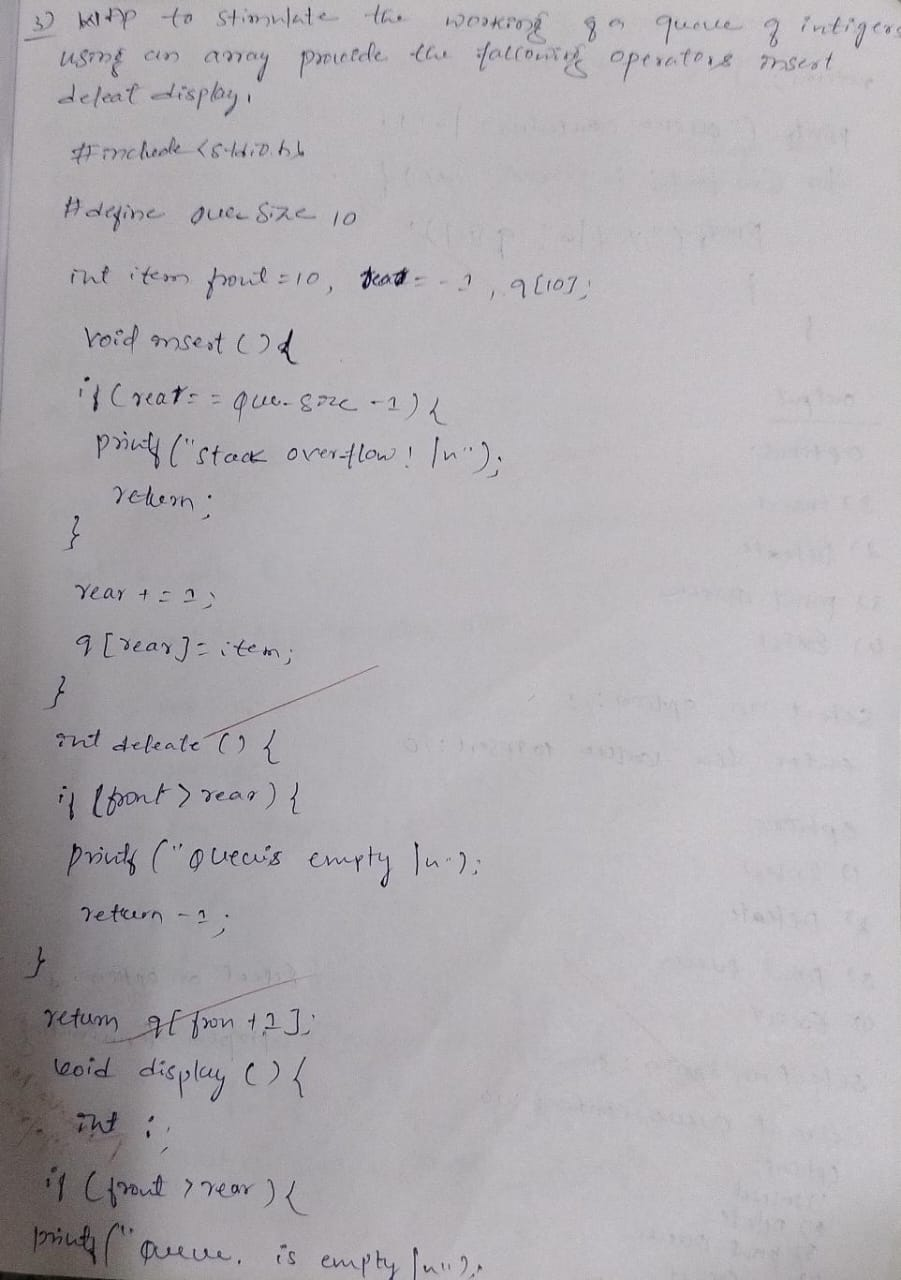 3) WAP to stimulate the working of a queue of intigers
using an array provide the following operators insert
deleat display,
#include <stdio.h>
#define que Size 10
int item front = 10, rear = -1, q[10];
void insert () {
if (rear == que-size -1) {
printf ("stack overflow! \n");
return;
}
rear += 1;
q [rear] = item;
}
int deleate () {
if (front > rear) {
printf ("Queue is empty \n");
return -1;
}
return q[ fron +1];
void display () {
int ;
if (front > rear) {
printf ("Queue. is empty \n");